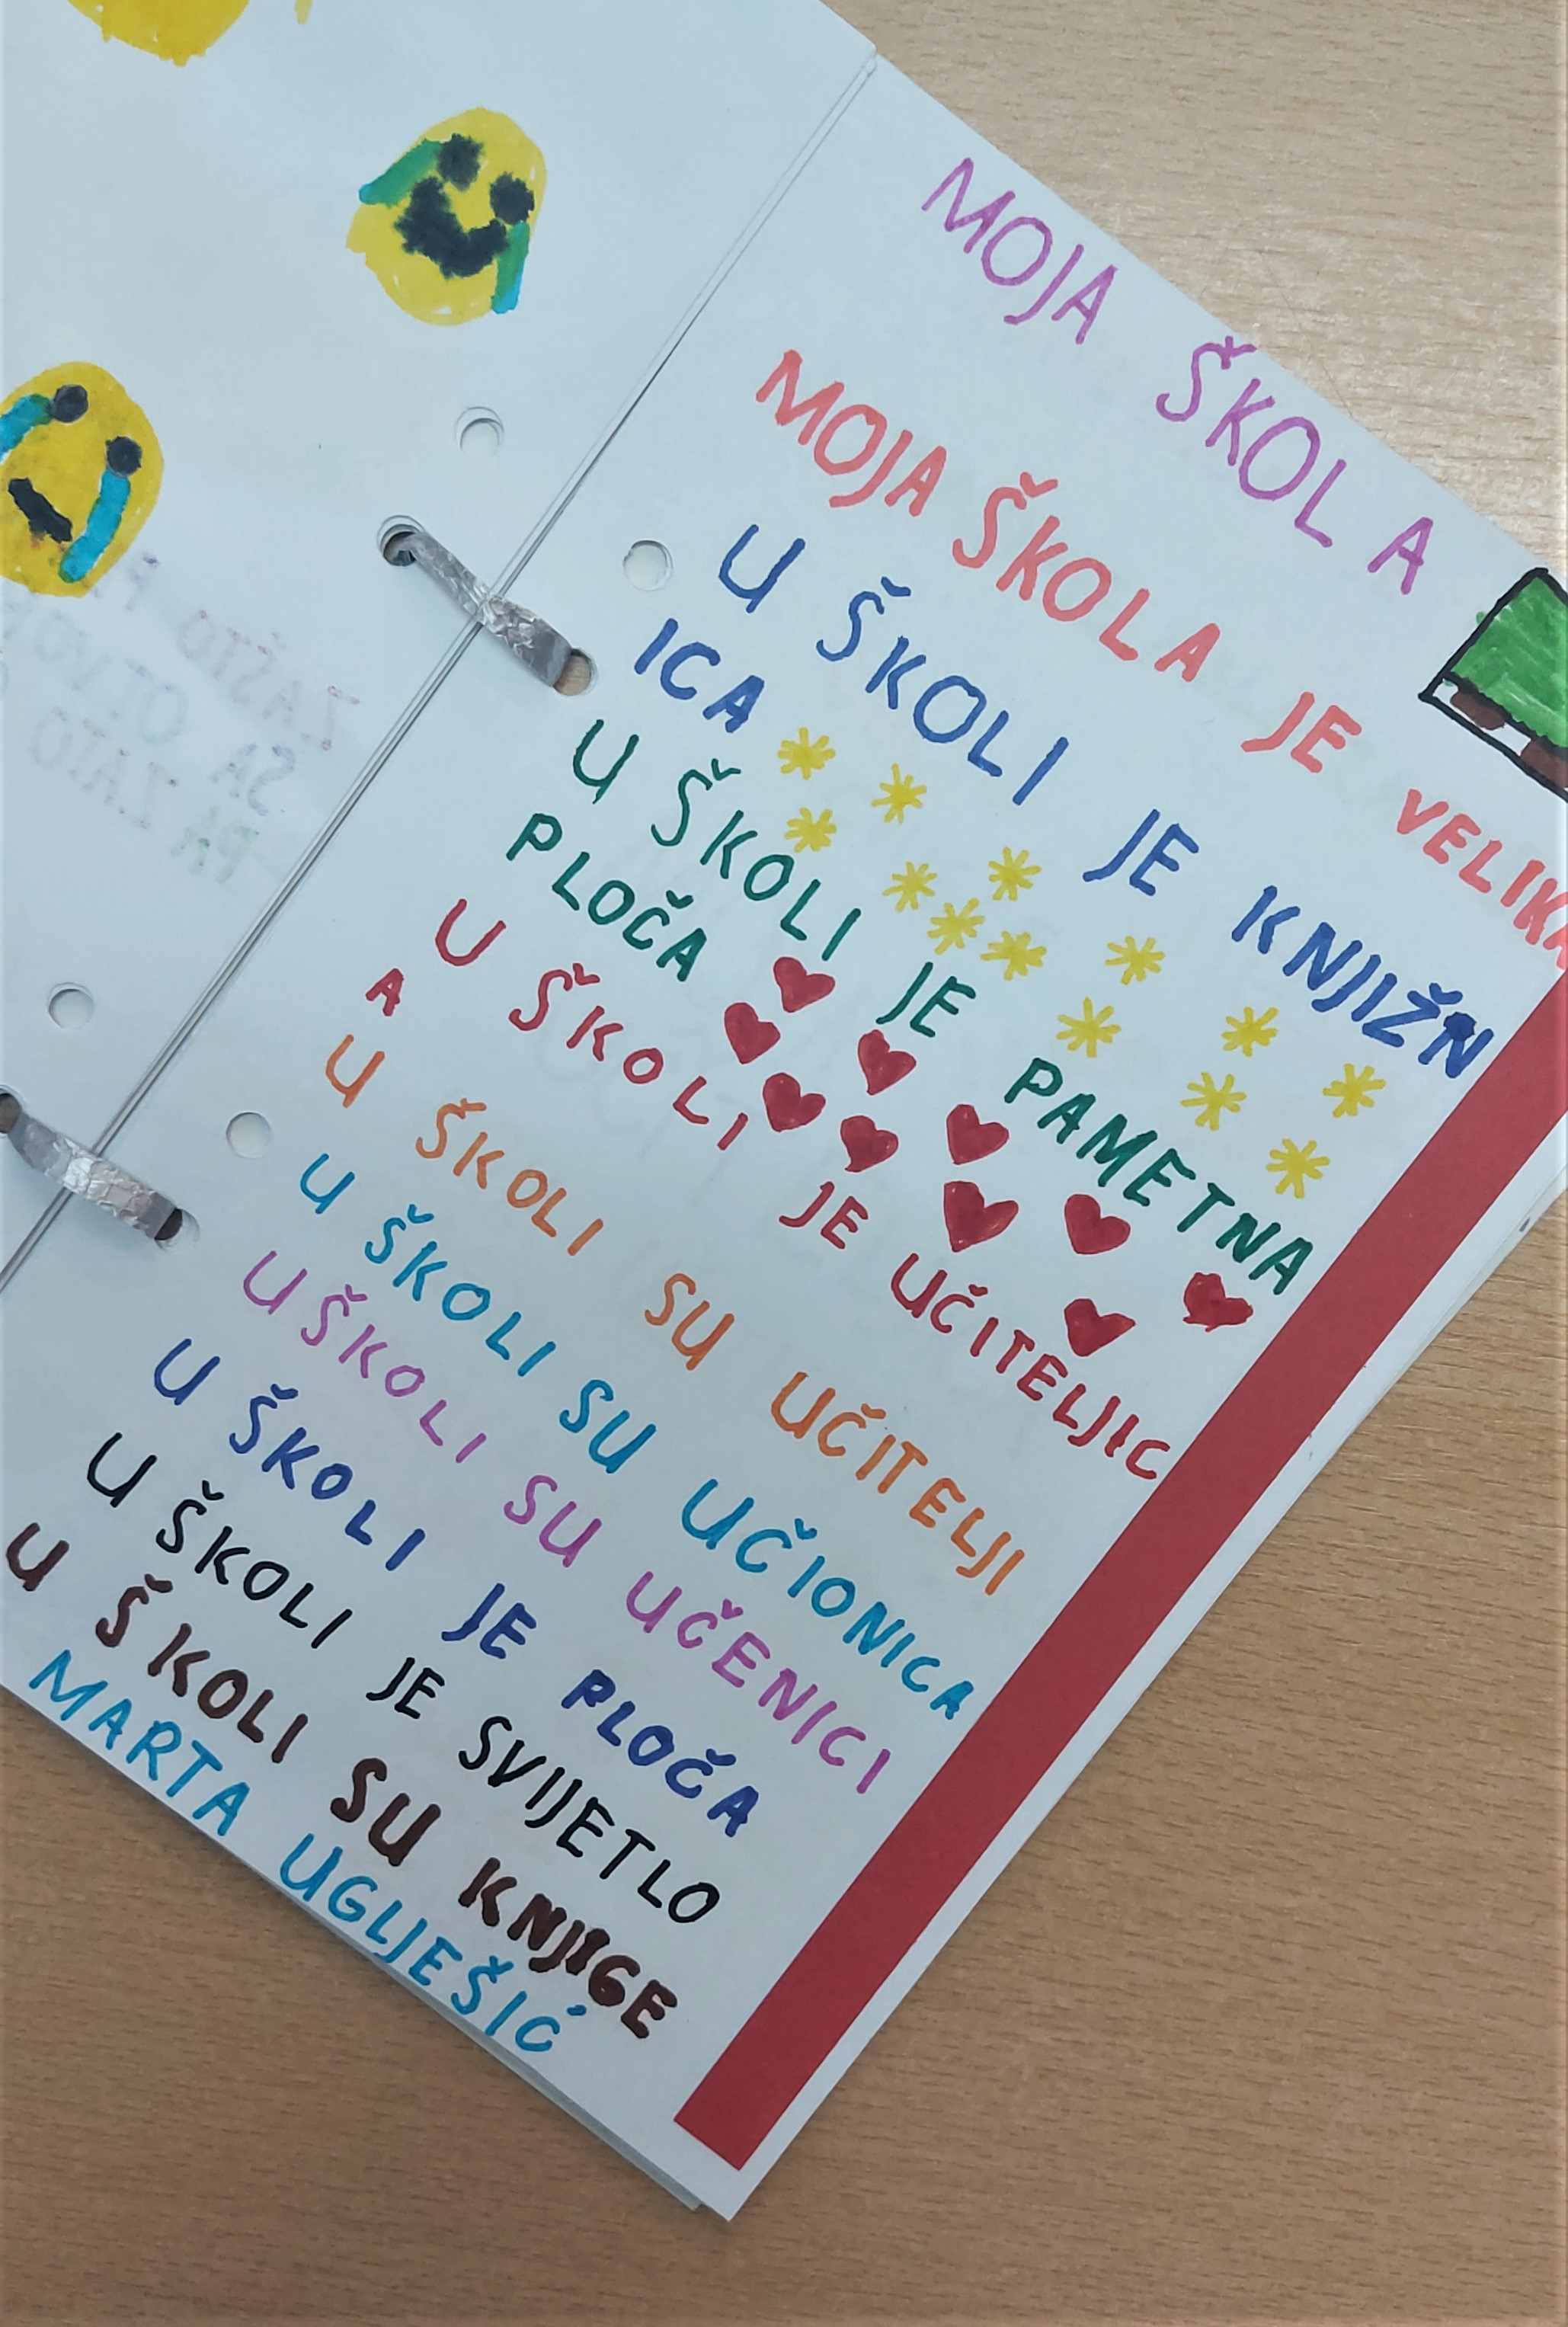 MOJA ŠKOLA
MOJA ŠKOLA JE VELIKA
U ŠKOLI JE KNJIŽN
ICA
U ŠKOLI JE PAMETNA
PLOČA
U ŠKOLI JE UČITELJIC
A
U ŠKOLI SU UČITELJI
U ŠKOLI SU UČIONICA
U ŠKOLI SU UČENICI
U ŠKOLI JE PLOČA
U ŠKOLI JE SVIJETLO
U ŠKOLI SU KNJIGE
MARTA UGLJEŠIĆ